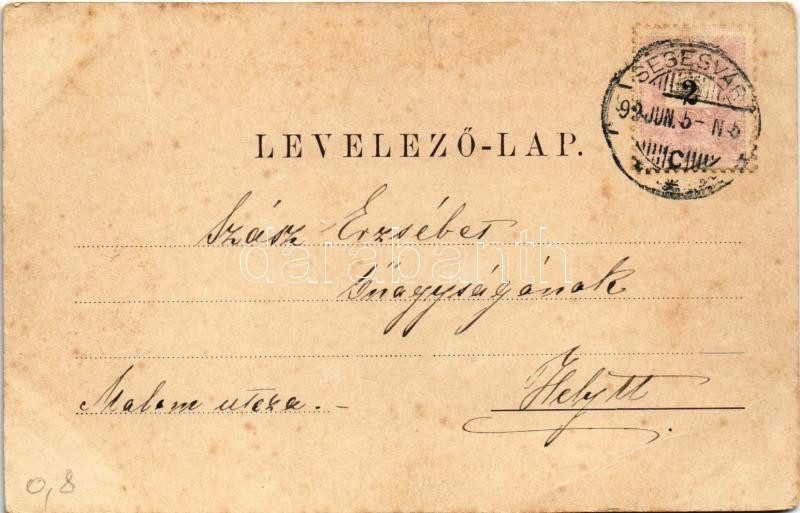 SEGESVÁR
2
99 JUN. 5 - N 5
C
LEVELEZŐ-LAP.
Szász Erzsébet
Őnagyságának
Helytt
Malom utcza. -
0,8
darabanth